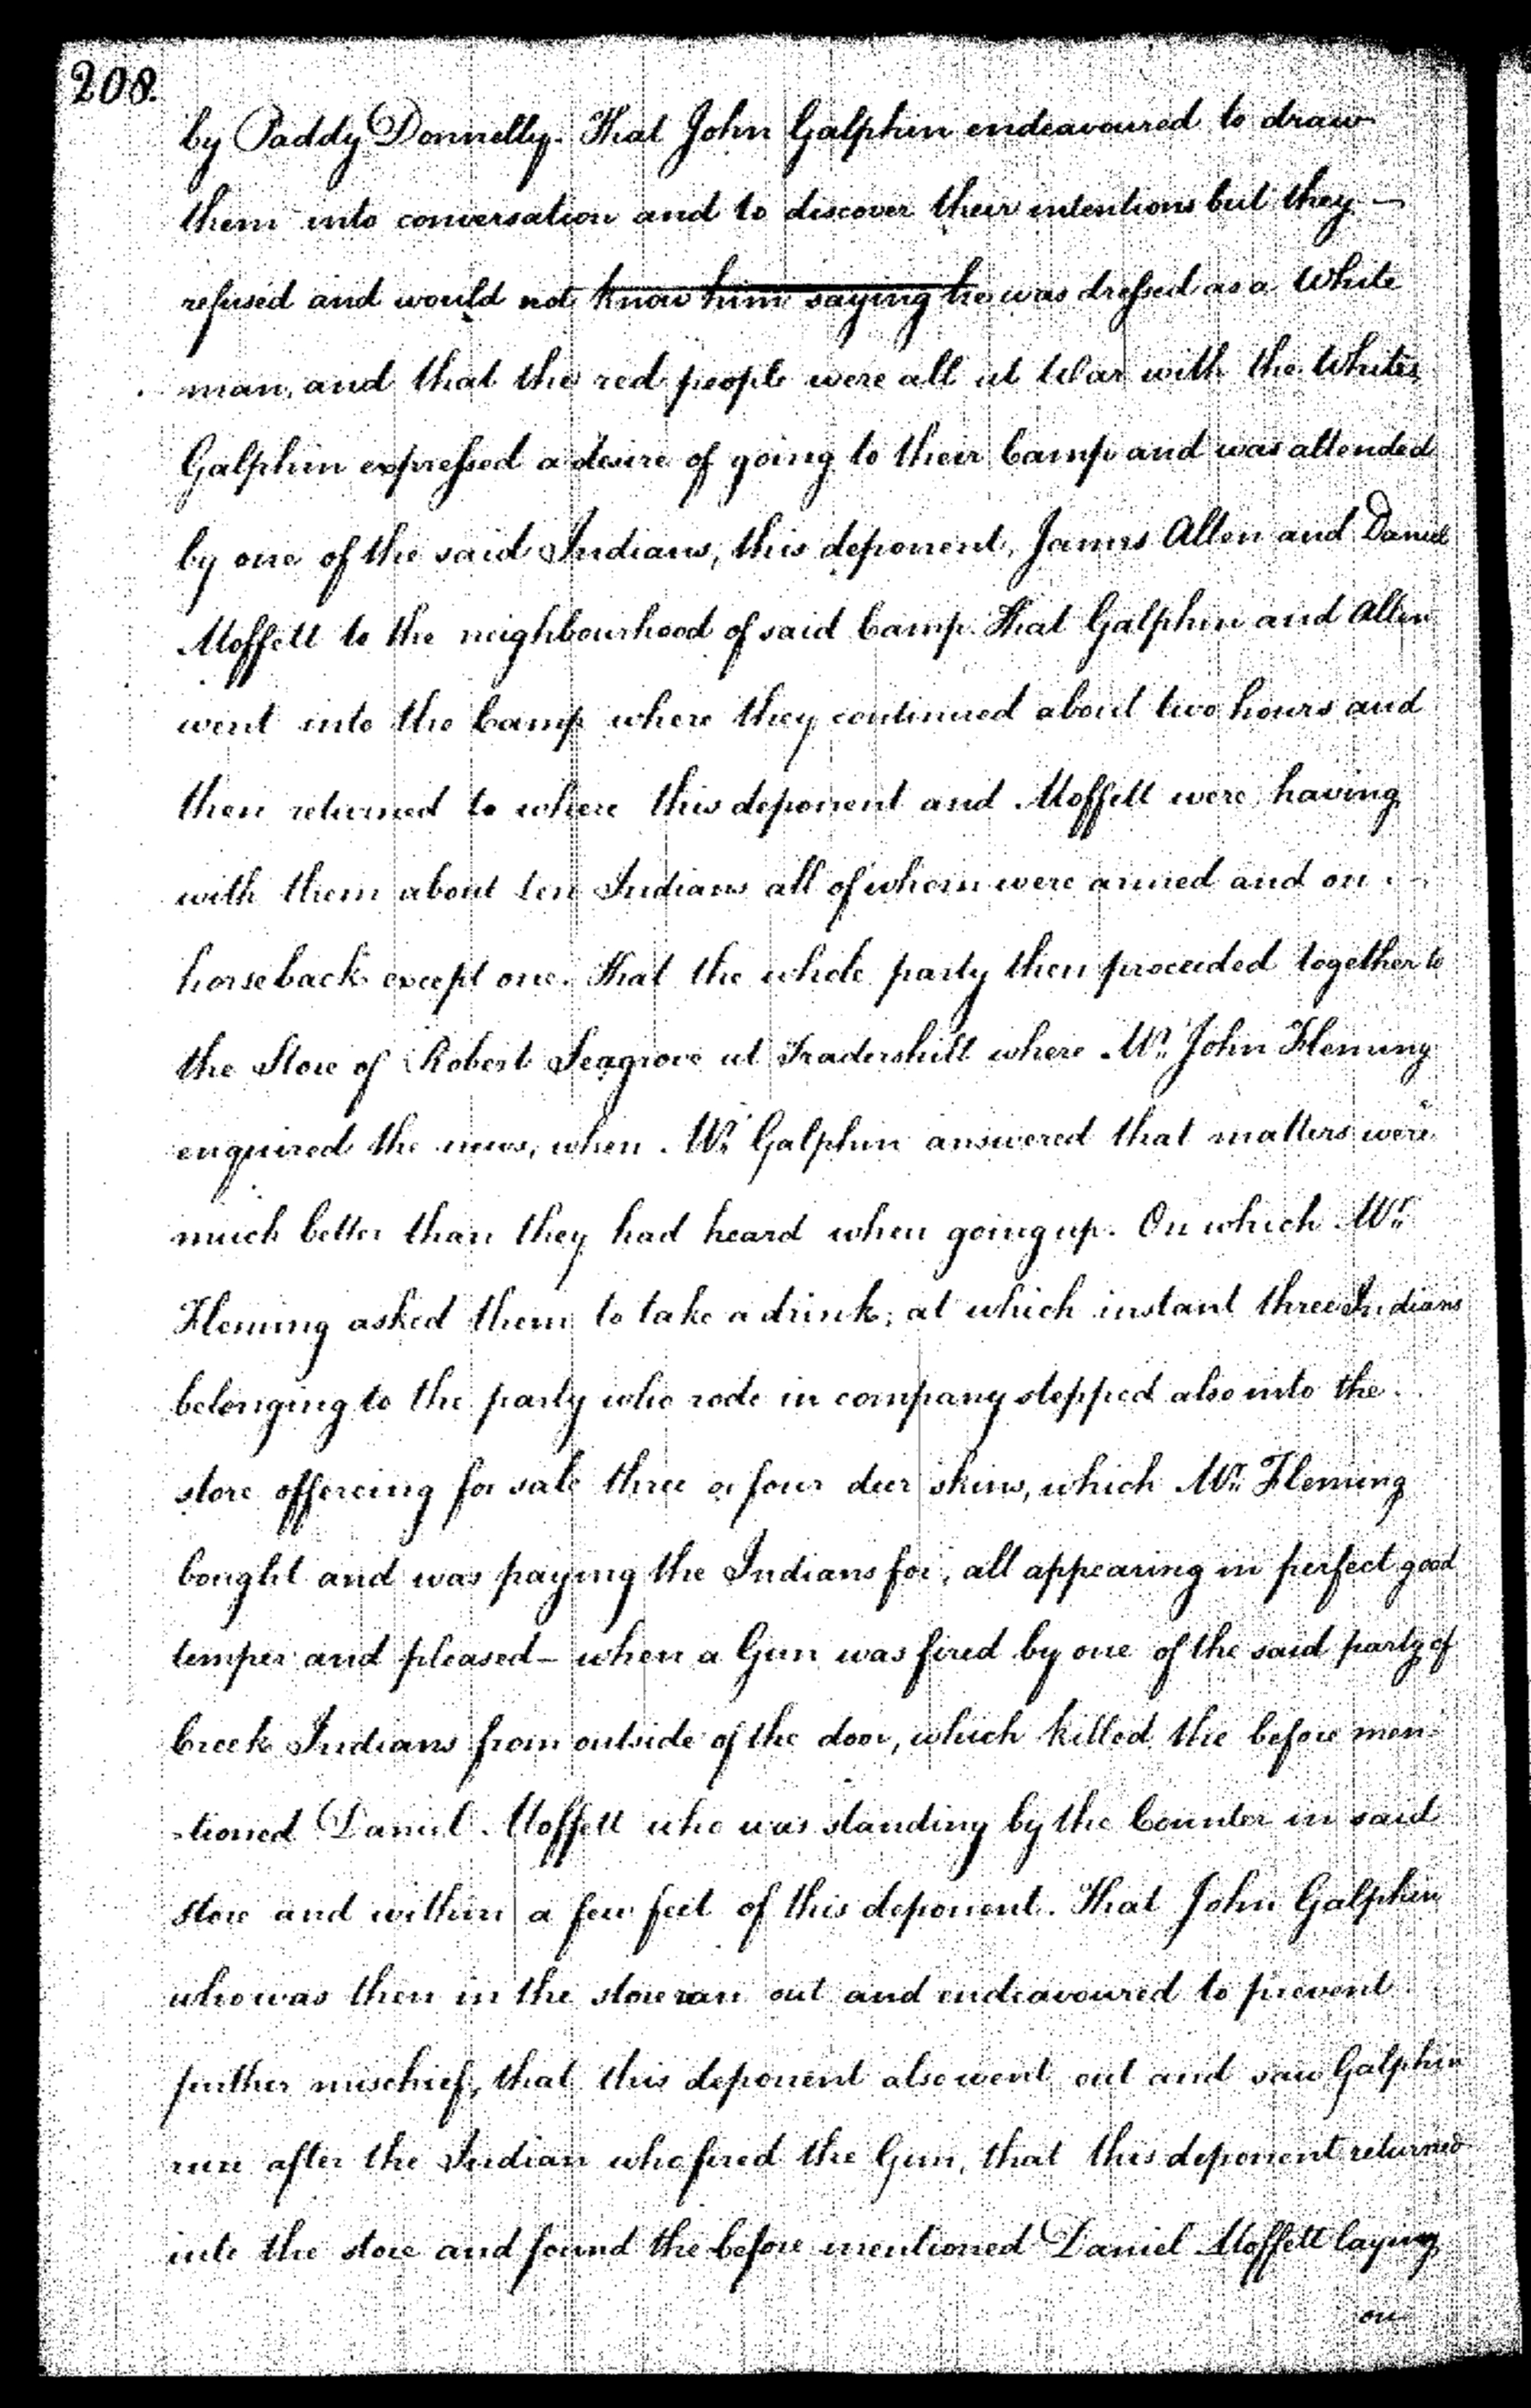 208.
by Paddy Donnelly. That John Galphin endeavoured to draw
them into conversation and to discover their intentions but they —
refused and would not know him saying he was dressed as a White
man, and that the red people were all at War with the Whites
Galphin expressed a desire of going to their Camp and was attended
by one of the said Indians, this deponent, James Allen and Daniel
Moffett to the neighbourhood of said Camp. That Galphin and Allen
went into the Camp where they continued about two hours and
then returned to where this deponent and Moffett were, having
with them about ten Indians all of whom were armed and on
horseback except one. That the whole party then proceeded together to
the Store of Robert Seagrove at Tradershill where Mr. John Fleming
enquired the news, when Mr. Galphin answered that matters were
much better than they had heard when going up. On which Mr.
Fleming asked them to take a drink; at which instant three Indians
belonging to the party who rode in company stepped also into the
store offereing for sale three or four deer skins, which Mr. Fleming
bought and was paying the Indians for, all appearing in perfect good
temper and pleased — when a Gun was fired by one of the said party of
Creek Indians from outside of the door, which killed the before men-
-tioned Daniel Moffett who was standing by the Counter in said
store and within a few feet of this deponent. That John Galphin
who was then in the store ran out and endeavoured to prevent
further mischief, that this deponent also went out and saw Galphin
run after the Indian who fired the Gun, that this deponent returned
into the store and found the before mentioned Daniel Moffett laying
on